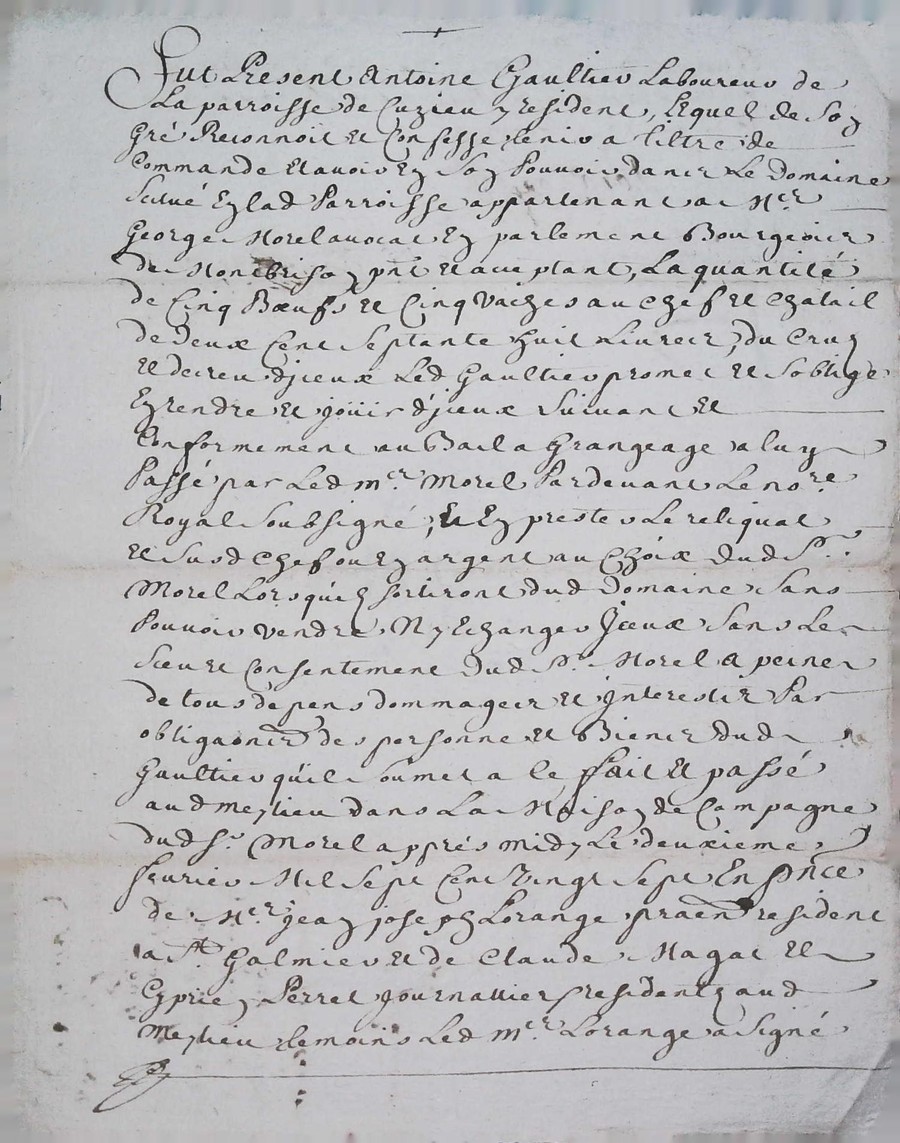 Fut Present Antoine Gaultier Laboureur de
La parroisse de Cuzieu y resident, Lequel de Soy
Gré Reconnoit et Confesse tenir a tiltre de
Commande et avoir Ey Soy Pouvoir dans Le Domaine
Scitué Ey lad Parroisse appartenant a Mer
George Morel avocat Ey parlement Bourgeois
de Montbrisoy pnt et aceptant, La quantité
de Cinq Bœufs et Cinq Vaches au Chef et Chatail
de deux Cent Septante huit Livres, du Cruy
et decreu d'jceux Led Gaultier promet et Soblige
Ey rendre et joüir d'jceux Suivant et
Conformement au Bail a Grangeage a luy
Passé par Led mer Morel Pardevant Le nore
Royal Soubsigné, et Ey prester Le reliquat
et Susd Chef ou Ey argent au Choix dud Sr
Morel Lorsquils Sortiront dud Domaine Sans
Pouvoir vendre Ny Echanger Jceux Sans Le
Sceu et Consentement dud Sr Morel a peine
de tous dépens dommages et jnterestz Par
obligaons des personne et Biens dud
Gaultier qu'il Soumet a le fait et passé
aud Meylieu dans La Maisoy de Campagne
dud Sr Morel apprés midy Le deuxieme
fevrier Mil Sept Cent Vingt Sept En pnce
de Mer jeay joseph Lorange praen resident
a St Galmier et de Claude Magat et
Cypriey Perret Journallier residents aud
Meylieu temoins Led mer Lorange a Signé